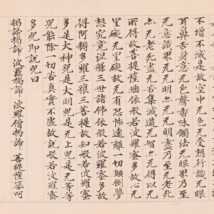 不增不減是故空中无色无受想行識无眼
耳鼻舌身意无色聲香味觸法无眼界乃至
无意識界无无明亦无无明盡乃至无老死
亦无老死盡无苦集滅道无智亦无得以无
所得故菩提薩埵依般若波羅蜜多故心无
罣礙无罣礙故无有恐怖遠離一切顛倒夢
想究竟涅槃三世諸佛依般若波羅蜜多故
得阿耨多羅三藐三菩提故知般若波羅蜜
多是大神咒是大明咒是无上咒是无等等
咒能除一切苦真實不虛故說般若波羅蜜
多咒即說咒曰
揭諦揭諦 波羅揭諦 波羅僧揭諦 菩提薩婆訶